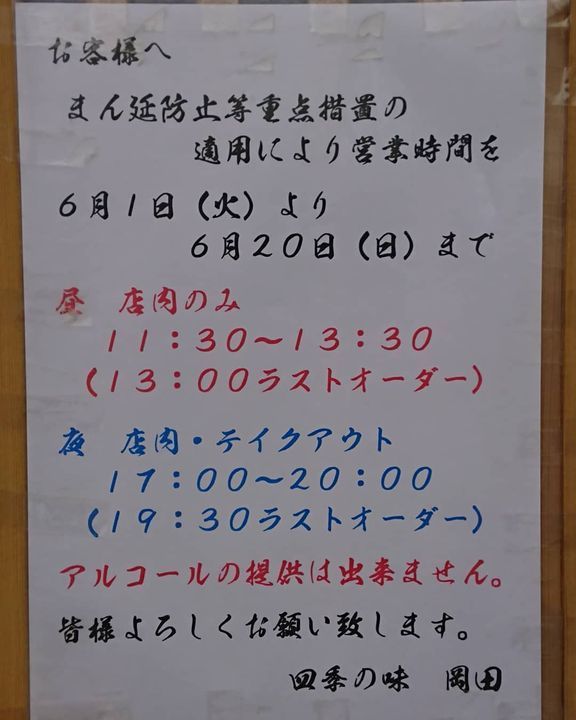 お客様へ
まん延防止等重点措置の
適用により営業時間を
6月1日（火）より
6月20日（日）まで
昼　店内のみ
11：30～13：30
（13：00ラストオーダー）
夜　店内・テイクアウト
17：00～20：00
（19：30ラストオーダー）
アルコールの提供は出来ません。
皆様よろしくお願い致します。
四季の味　岡田